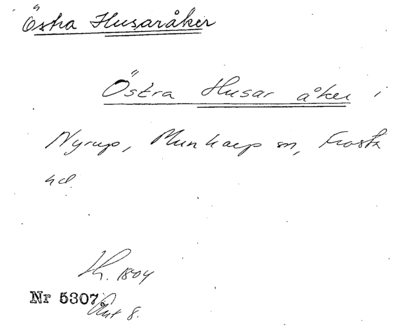 Östra Husaråker
Östra Husar åker i
Nyrup, Munkarp sn, Frosta
hd.
Sk. 1804
Nr 5307
Akt 8.